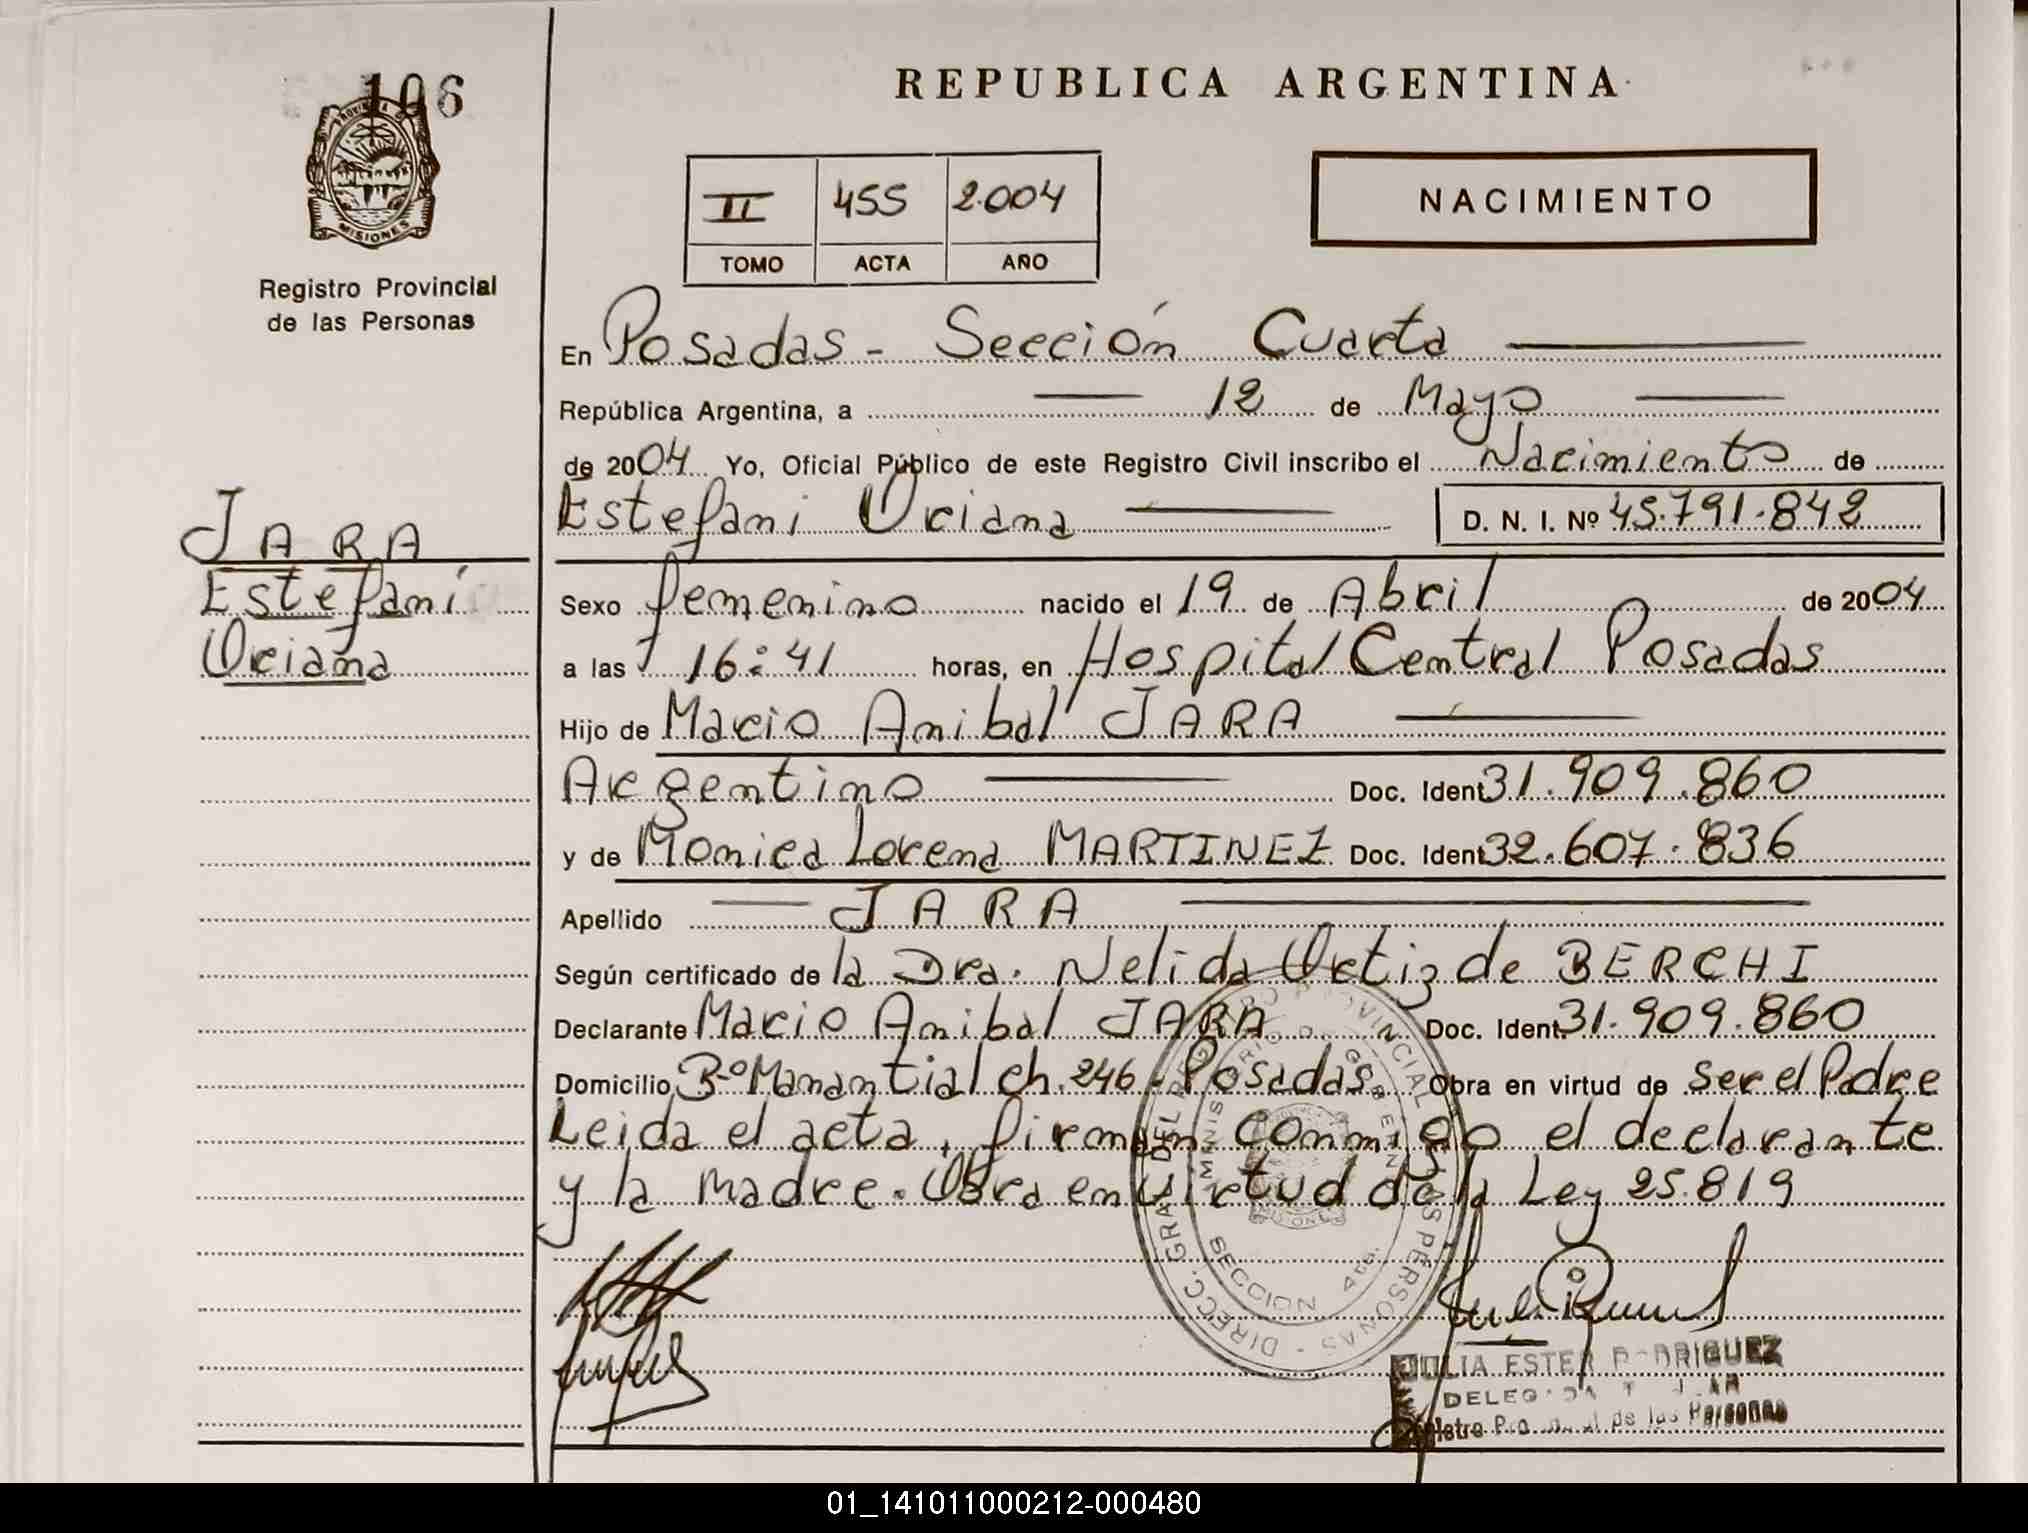 106
PROVINCIA
MISIONES
Registro Provincial
de las Personas
JARA
Estefaní
Oriana
REPUBLICA ARGENTINA
NACIMIENTO
II 455 2.004
TOMO ACTA AÑO
En Posadas - Sección Cuarta
República Argentina, a 12 de Mayo
de 2004 Yo, Oficial Público de este Registro Civil inscribo el Nacimiento de
Estefani Oriana D. N. I. Nº 45.791.842
Sexo femenino nacido el 19 de Abril de 2004
a las 16:41 horas, en Hospital Central Posadas
Hijo de Mario Anibal JARA
Argentino Doc. Ident 31.909.860
y de Monica Lorena MARTINEZ Doc. Ident 32.607.836
Apellido JARA
Según certificado de la Dra. Nelida Ortiz de BERCHI
Declarante Mario Anibal JARA Doc. Ident. 31.909.860
Domicilio Bº Manantial ch. 246 - Posadas Obra en virtud de ser el Padre
Leida el acta, firman conmigo el declarante
y la madre. Obra en virtud de la Ley 25.819
SECCION
JULIA ESTER RODRIGUEZ
DELEGADA
de las Personas
01_141011000212-000480